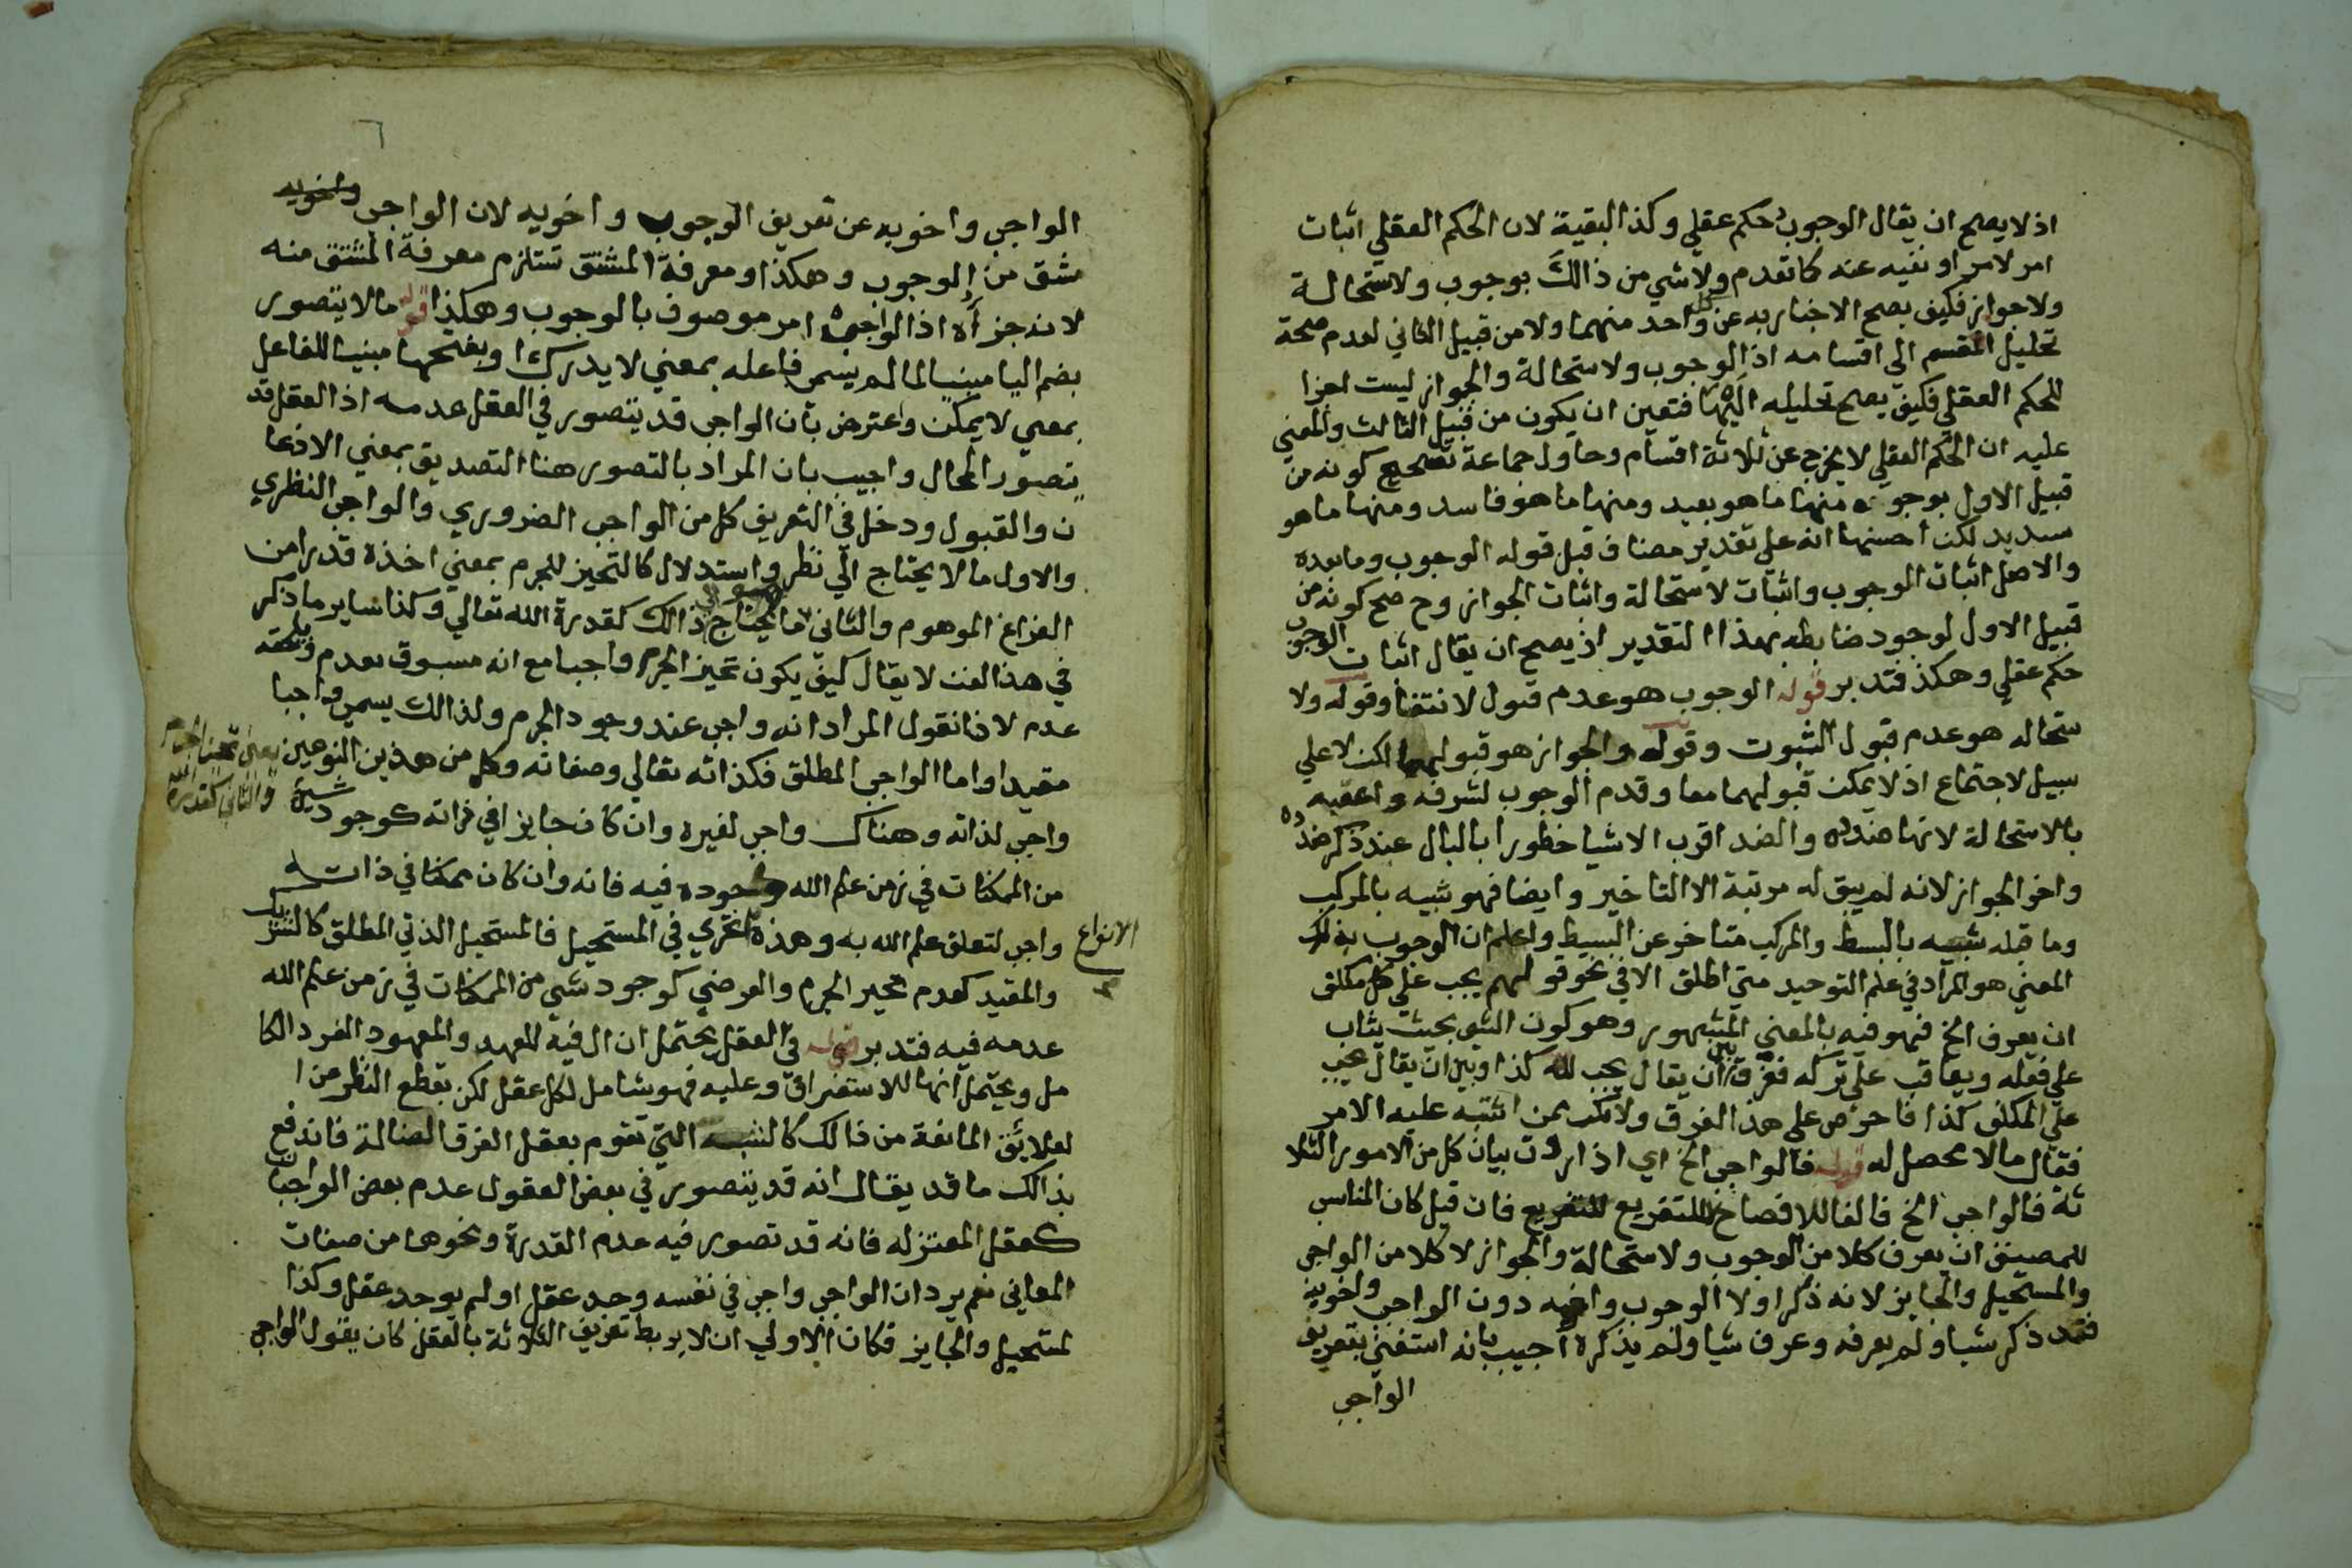 اذ لا يصح ان يقال الوجوب حكم عقلي وكذا البقية لان الحكم العقلي اثبات
امر لامر او نفيه عنه كما تقدم ولا شي من ذالك بوجوب ولا ستحالة
ولا جواز فكيف يصح الاخبار به عن كل واحد منهما ولا من قبيل الثاني لعدم صحة
تحليل المقسم الى اقسامه اذ الوجوب ولا ستحالة والجواز ليست اجزا
للحكم العقلي فكيف يصح تحليله اليها فتعين ان يكون من قبيل الثالث والمعني
عليه ان الحكم العقلي لا يخرج عن ثلاثة اقسام وحاول جماعة تصحيح كونه من
قبيل الاول بوجوه منها ما هو بعيد ومنها ما هو فاسد ومنها ما هو
سديد لكن احسنها انه علي تقدير مضاف قبل قوله الوجوب وما بعده
والاصل اثبات الوجوب واثبات لاستحالة واثبات الجواز وح صح كونه من
قبيل الاول لوجود ضابطه بهذا التقدير اذ يصح ان يقال اثبات الوجوب
حكم عقلي وهكذ فتدبر قوله الوجوب هو عدم قبول لانتفا وقوله ولا
ستحاله هو عدم قبول الثبوت وقوله والجواز هو قبولهما لكن لا علي
سبيل لاجتماع اذ لا يمكن قبولهما معا وقدم الوجوب لشرفه واعقبه
بالاستحالة لانها ضده والضد اقرب الاشيا خطورا بالبال عند ذكر ضده
واخر الجواز لانه لم يبق له مرتبة الا التاخير وايضا فهو شبيه بالمركب
وما قبله شبيه بالبسط والمركب متاخر عن البسيط واعلم ان الوجوب بذلك
المعني هو المراد في علم التوحيد متي اطلق الا في نحو قولهم يجب علي كل مكلف
ان يعرف الخ فهو فيه بالمعني المشهور وهو كون الشي بحيث يثاب
علي فعله ويعاقب علي تركه ففرق بين ان يقال يجب لله كذا وبين ان يقال يجب
علي المكلف كذا فاحرص علي هذا الفرق ولا تكن ممن اشتبه عليه الامر
فقال ما لا محصل له قوله فالواجب الخ اي اذا اردت بيان كل من الامور الثلا
ثة فالواجب الخ فالفا للافصاح لا للتفريع للتفريع فان قيل كان المناسب
للمصنف ان يعرف كلا من الوجوب ولا ستحالة والجواز لا كلا من الواجب
والمستحيل والجايز لانه ذكر اولا الوجوب واخويه دون الواجب واخويه
فقد ذكر شيا ولم يعرفه وعرف شيا ولم يذكره اجيب بانه استغني بتعريف
الواجب
٦
الواجب واخويه عن تعريف الوجوب واخويه لان الواجب واخويه
مشق من الوجوب وهكذا ومعرفة المشتق تستلزم معرفة المشتق منه
لانه جزأه اذ الواجب امر موصوف بالوجوب وهكذا قوله ما لا يتصور
بضم اليا مبنيا لما لم يسمى فاعله بمعني لا يدرك او بفتحها مبنيا للفاعل
بمعني لا يمكن واعترض بان الواجب قد يتصور في العقل عدمه اذ العقل قد
يتصور المحال واجيب بان المراد بالتصور هنا التصديق بمعني الاذعا
ن والقبول ودخل في التعريف كل من الواجب الضروري والواجب النظري
والاول ما لا يحتاج الي نظر واستدلال كالتحيز للجرم بمعني اخذه قدرا من
الفراغ الموهوم والثاني ما يحتاج ذالك كقدرة الله تعالي وكذا ساير ما ذكر
في هذا الفن لا يقال كيف يكون تحيز الجرم واجبا مع انه مسبوق بعدم ويلحقه
عدم لانا نقول المراد انه واجب عند وجود الجرم ولذالك يسمى واجبا
مقيدا واما الواجب المطلق فكذاته تعالي وصفاته وكل من هذين النوعين يعني تحيز الجرم
والثاني كقدرة الله
واجب لذاته وهناك واجب لغيره وان كان جايزا في ذاته كوجود شي
من الممكنات في زمن علم الله وجوده فيه فانه وان كان ممكنا في ذاته
واجب لتعلق علم الله به وهذه الانواع تجري في المستحيل فالمستحيل الذتي المطلق كالشريك
والمقيد كعدم تحيز الجرم والعرضي كوجود شي من الممكنات في زمن علم الله
عدمه فيه فتدبر قوله في العقل يحتمل ان ال فيه للعهد والمعهود الفرد الكا
مل ويحتمل انها للاستغراق وعليه فهو شامل لكل عقل لكن بقطع النظر من ا
لعلائق المانعة من ذالك كالشبه التي تقوم بعقل الفرق الضالة فاندفع
بذالك ما قد يقال انه قد يتصور في بعض العقول عدم بعض الواجبات
كعقل المعتزله فانه قد تصور فيه عدم القدرة ونحوها من صفات
المعاني نعم يرد ان الواجب واجب في نفسه وجد عقل او لم يوجد عقل وكذا
لمستحيل والجايز فكان الاولي ان لا يربط تعريف الثلاثة بالعقل كان يقول الواجب